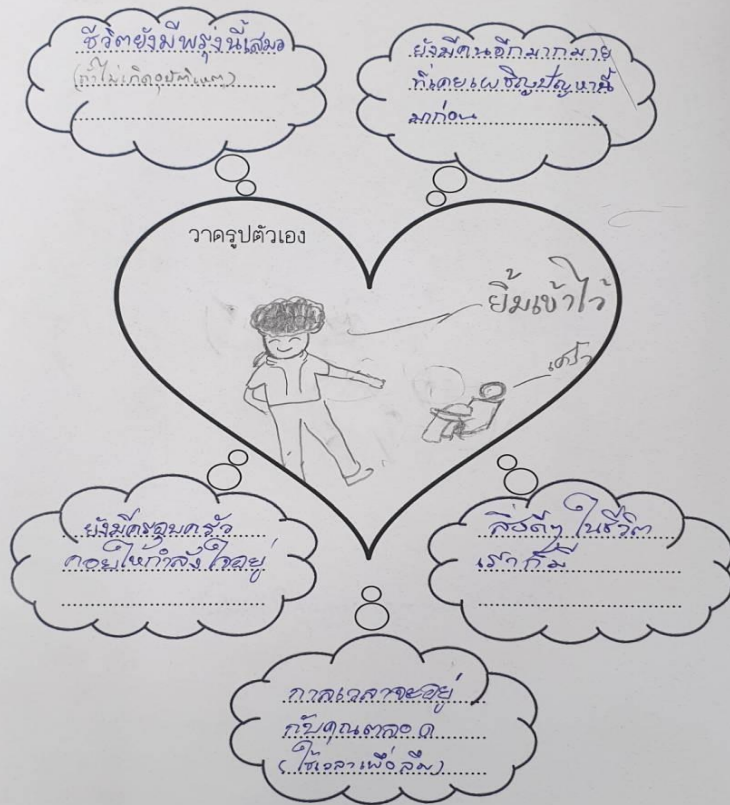 ชีวิตยังมีพรุ่งนี้เสมอ
(ถ้าไม่เกิดอุบัติเหตุ)
ยังมีคนอีกมากมาย
ที่เคยเผชิญปัญหานี้
มาก่อน
วาดรูปตัวเอง
ยิ้มเข้าไว้
เศร้า
ยังมีครอบครัว
คอยให้กำลังใจอยู่
สิ่งดีๆ ในชีวิต
เราก็มี
กาลเวลาจะอยู่
กับคุณตลอด
(ใช้เวลาเพื่อลืม)